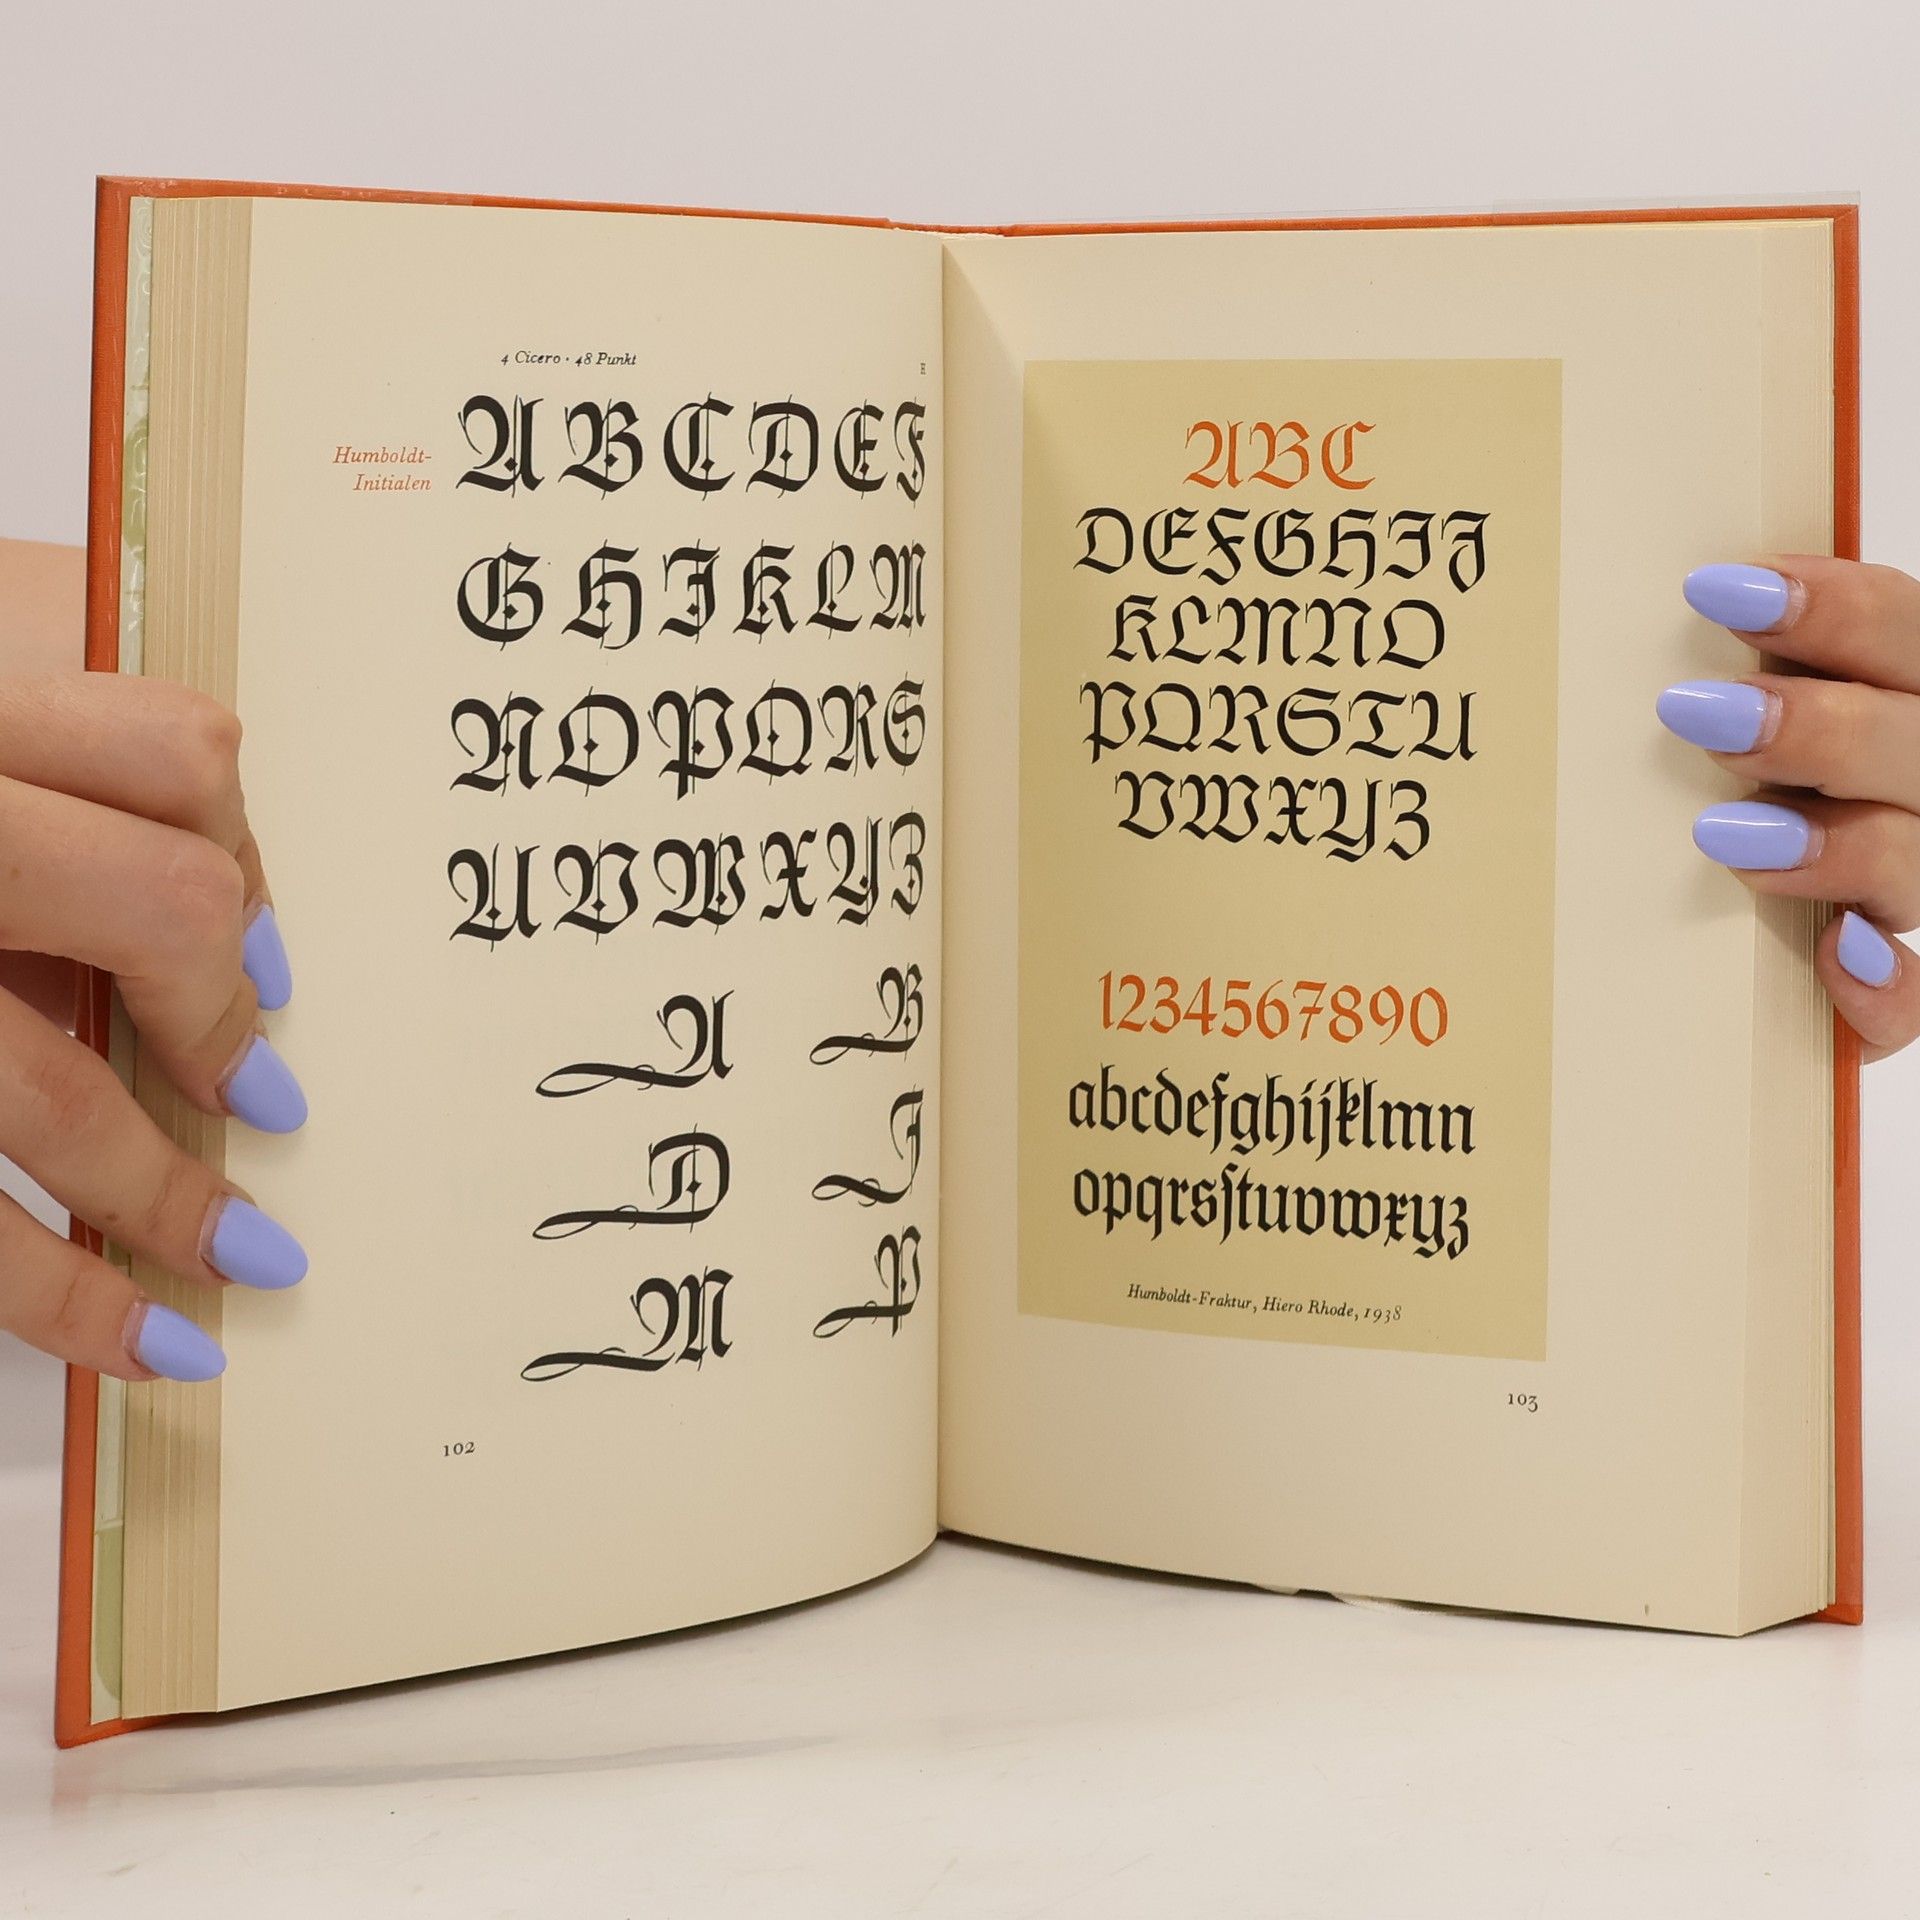 4 Cicero · 48 Punkt
H
Humboldt-
Initialen
A B C D E F
G H I K L M
N O P Q R S
U V W X Y Z
A B
D J
M P
102
ABC
DEFGHIJ
KLMNO
PQRSTU
VWXYZ
1234567890
abcdefghijklmn
opqrsſtuvwxyz
Humboldt-Fraktur, Hiero Rhode, 1938
103